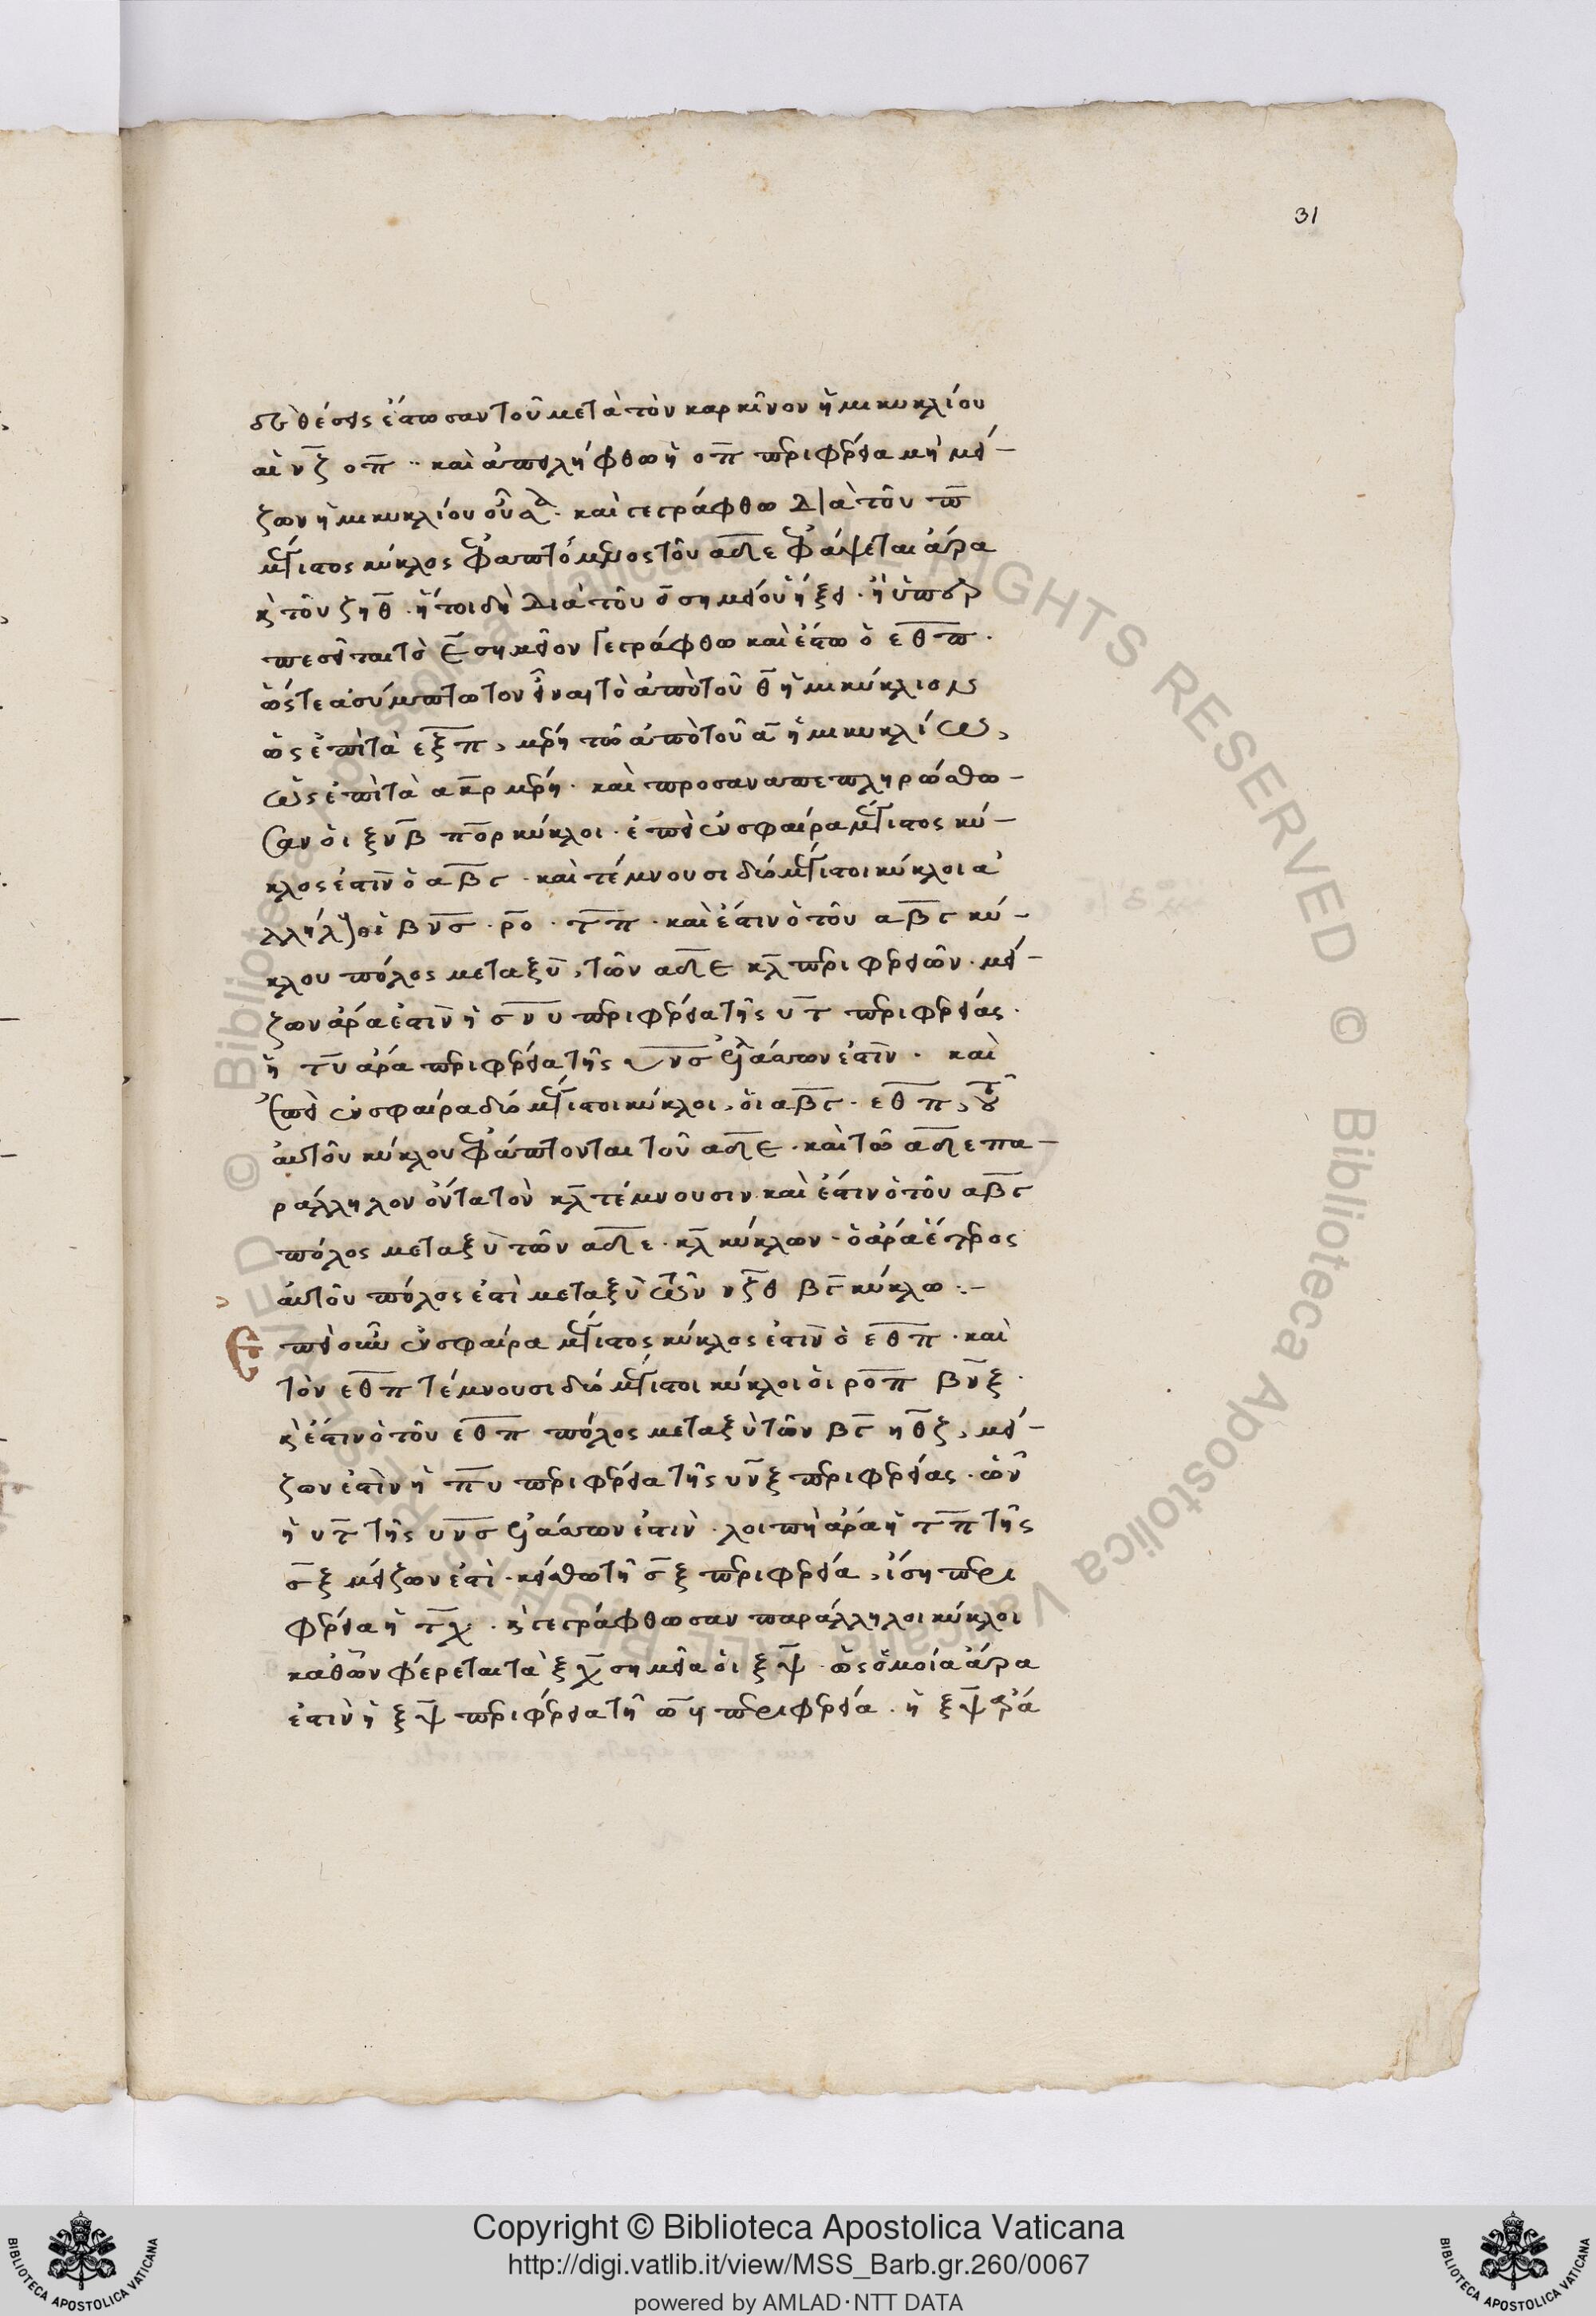 31
θέσεις ἔστωσαν τοῦ μετὰ τὸν καρκίνον ἡμικυκλίου
αἱ νζ οπ ·· καὶ ἀπειλήφθω ἡ οπ περιφέρεια μὴ μεί-
ζων ἡμικυκλίου οὖσα. καὶ γεγράφθω διὰ τοῦ π
μέγιστος κύκλος ἐφαπτόμενος τοῦ αδε ἐφάψεται ἄρα
κ τοῦ ζηθ · ἤτοι δὴ διὰ τοῦ ο σημείου ἥξει · ἢ ὑπερ
πεσεῖται τὸ ε σημεῖον γεγράφθω καὶ ἔστω ὁ εθπ ·
ὥστε ἀσύμπτωτον εἶναι τὸ ἀπὸ τοῦ θ ἡμικύκλιον
ὡς ἐπὶ τὰ εξπ, μέρη τῶ ἀπὸ τοῦ α ἡμικυκλίω,
ὡς ἐπὶ τὰ ακρ μέρη · καὶ προσαναπεπληρώσθω-
σαν οἱ ξνβ πορ κύκλοι · ἐπεὶ ἐν σφαίρα μέγιστος κύ-
κλος ἐστὶν ὁ αβγ · καὶ τέμνουσι δύο μέγιστοι κύκλοι ἀ
λλήλ οἱ βνσ · ρο · τπ · καὶ ἔστιν ὁ τοῦ αβγ κύ-
κλου πόλος μεταξὺ, τῶν αδε κλ περιφερειῶν · μεί-
ζων ἄρα ἐστὶν ἡ σνυ περιφέρεια τῆς υτ περιφερείας ·
ἡ τυ ἄρα περιφέρεια τῆς υνσ ἐλάσσων ἐστὶν · καὶ
ἐπεὶ ἐν σφαίρα δύο μέγιστοι κύκλοι, οἱ αβγ · εθπ, τοῦ
αὐτοῦ κύκλου ἐφάπτονται τοῦ αδε · καὶ τῶ αδε πα-
ράλληλον ὄντα τὸν κλ τέμνουσιν καὶ ἔστιν ὁ τοῦ αβγ
πόλος μεταξὺ τῶν αδε · κλ κύκλων · ὁ ἄρα ἕτερος
αὐτοῦ πόλος ἐστὶ μεταξὺ τῶν νζθ βγ κύκλω :-
Ἐπεὶ οὖν ἐν σφαίρα μέγιστος κύκλος ἐστὶν ὁ εθπ · καὶ
τὸν εθπ τέμνουσι δύο μέγιστοι κύκλοι οἱ ροπ βνξ ·
κ ἔστιν ὁ τοῦ εθπ πόλος μεταξὺ τῶν βγ ηθζ, μεί-
ζων ἐστὶν ἡ πυ περιφέρεια τῆς υνξ περιφερείας · ὧν
ἡ υτ τῆς υνσ ἐλάσσων ἐστὶν · λοιπὴ ἄρα ἡ τπ τῆς
σξ μείζων ἐστὶ · κείσθω τῆ σξ περιφερεία, ἴση περι
φέρεια ἡ τχ · κ γεγράφθωσαν παράλληλοι κύκλοι
καθ ὧν φέρεται τὰ ξχ σημεῖα οἱ ξψ · ὡς ὁμοία ἄρα
ἐστὶν ἡ ξψ περιφέρεια τῆ ω περιφερεία · ἡ ξψ ἄρα
Copyright © Biblioteca Apostolica Vaticana
http://digi.vatlib.it/view/MSS_Barb.gr.260/0067
powered by AMLAD·NTT DATA